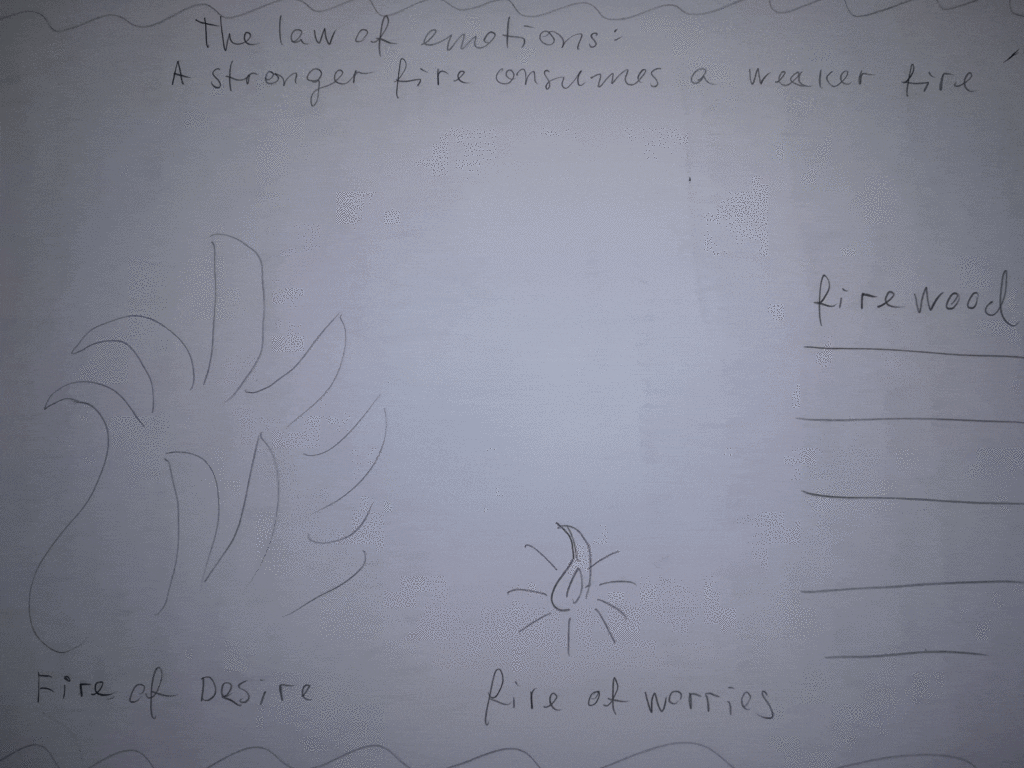 The law of emotions:
A stronger fire consumes a weaker fire
firewood
Fire of Desire
fire of worries